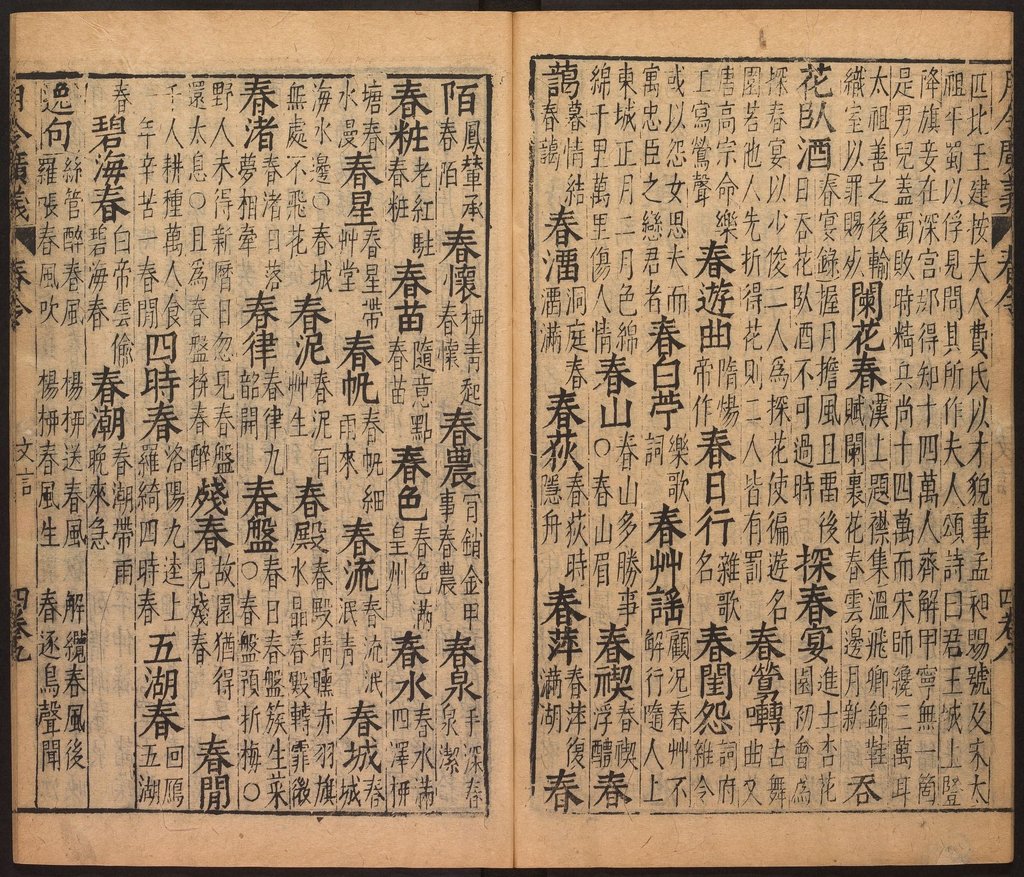 匹比王建按夫人費氏以才貌事孟昶賜號及宋太
祖平蜀以俘見問其所作夫人頌詩曰君王城上豎
降旗妾在深宮那得知十四萬人齊解甲寧無一箇
是男兒蓋蜀敗時精兵尚十四萬而宋師纔三萬耳
太祖善之後輸織室以罪賜死 闌花春 漢上題襟集溫飛卿錦鞋賦闌裏花春雲邊月新 吞
花臥酒 春宴錄握月擔風且畱後日吞花臥酒不可過時 探春宴 進士杏花園初會為
探春宴以少俊二人為探花使徧遊名園若他人先折得花則二人皆有罰 春鶯囀 古舞曲又
唐高宗命樂工寫鶯聲 春遊曲 隋煬帝作 春日行 雜歌名 春閨怨 詞府雜令
或以怨女思夫而寓忠臣之戀君者 春白苧 樂歌詞 春艸謠 顧況春艸不解行隨人上
東城正月二月色綿綿千里萬里傷人情 春山 春山多勝事○春山眉 春禊 春禊浮醴 春
藹 暮情結春藹 春溜 洞庭春溜滿 春荻 春荻時隱舟 春萍 春萍復滿湖 春
陌 鳳輦承春陌 春懷 青起春懷 春農 宵銷金甲事春農 春泉 手深春泉潔
春粧 老紅駐春粧 春苗 隨意點春苗 春色 春色滿皇州 春水 春水滿四澤 栁
塘春水曼 春星 春星帶艸堂 春帆 春帆細雨來 春流 春流泯泯青 春城 春城
海水邊○春城無處不飛花 春泥 春泥百艸生 春殿 春殿晴曛赤羽旗水晶春殿轉霏微
春渚 春渚日落夢相牽 春律 春律九韶開 春盤 春日春盤簇生菜○春盤預折梅○
野人未得新曆日忽見春盤還太息○且為春盤拚春醉 殘春 故園猶得見殘春 一春閒
千人耕種萬人食一年辛苦一春閒 四時春 洛陽九逵上羅綺四時春 五湖春 回鴈五湖
春 碧海春 白帝雲偷碧海春 春潮 春潮帶雨晚來急
逸句 絲管醉春風 楊栁送春風 解纜春風後
羅張春風吹 楊栁春風生 春逐鳥聲聞
月令廣義 春令 文言 四卷九